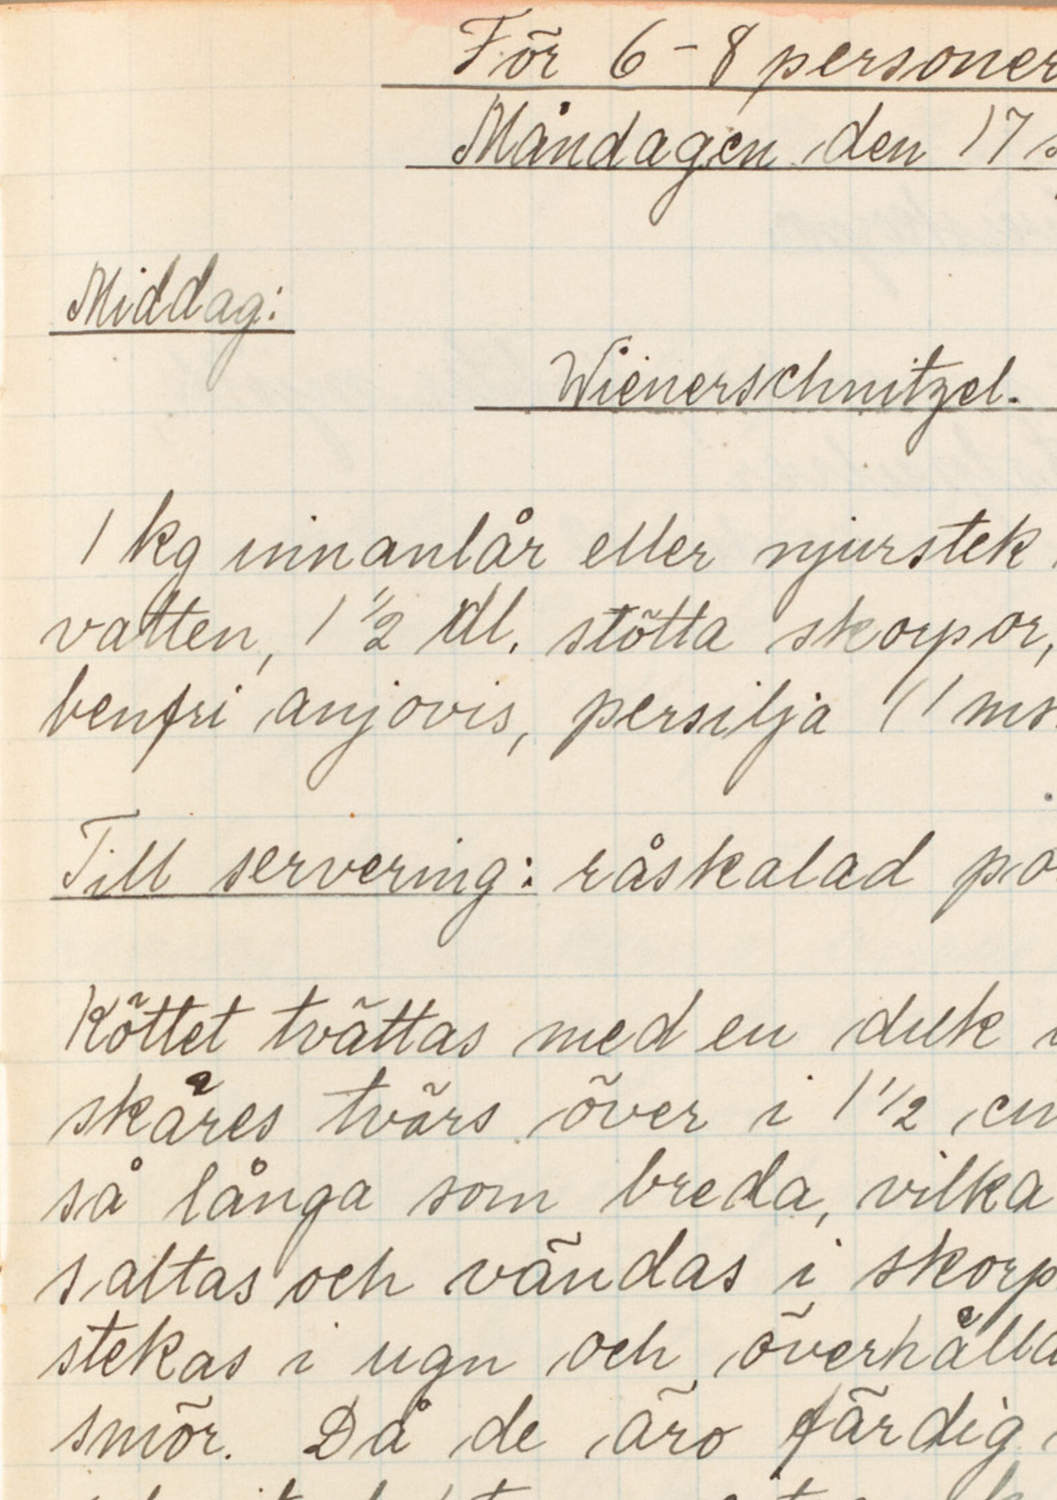 För 6-8 personer
Måndagen den 17
Middag:
Wienerschnitzel.
1 kg innanlår eller njurstek
vatten, 1 1/2 dl. stötta skorpor,
benfri anjovis, persilja (1 ms
Till servering: råskalad po
Köttet tvättas med en duk
skäres tvärs över i 1 1/2 cm
så långa som breda, vilka
saltas och vändas i skorp
stekas i ugn och överhälla
smör. Då de äro färdig